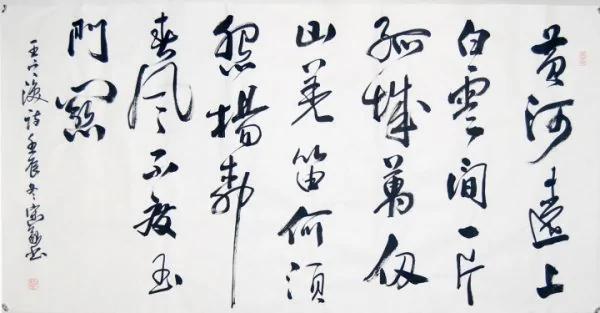 黄河遠上
白雲間一片
孤城萬仞
山羌笛何須
怨楊柳
春風不度玉
門關
王之渙詩壬辰冬書